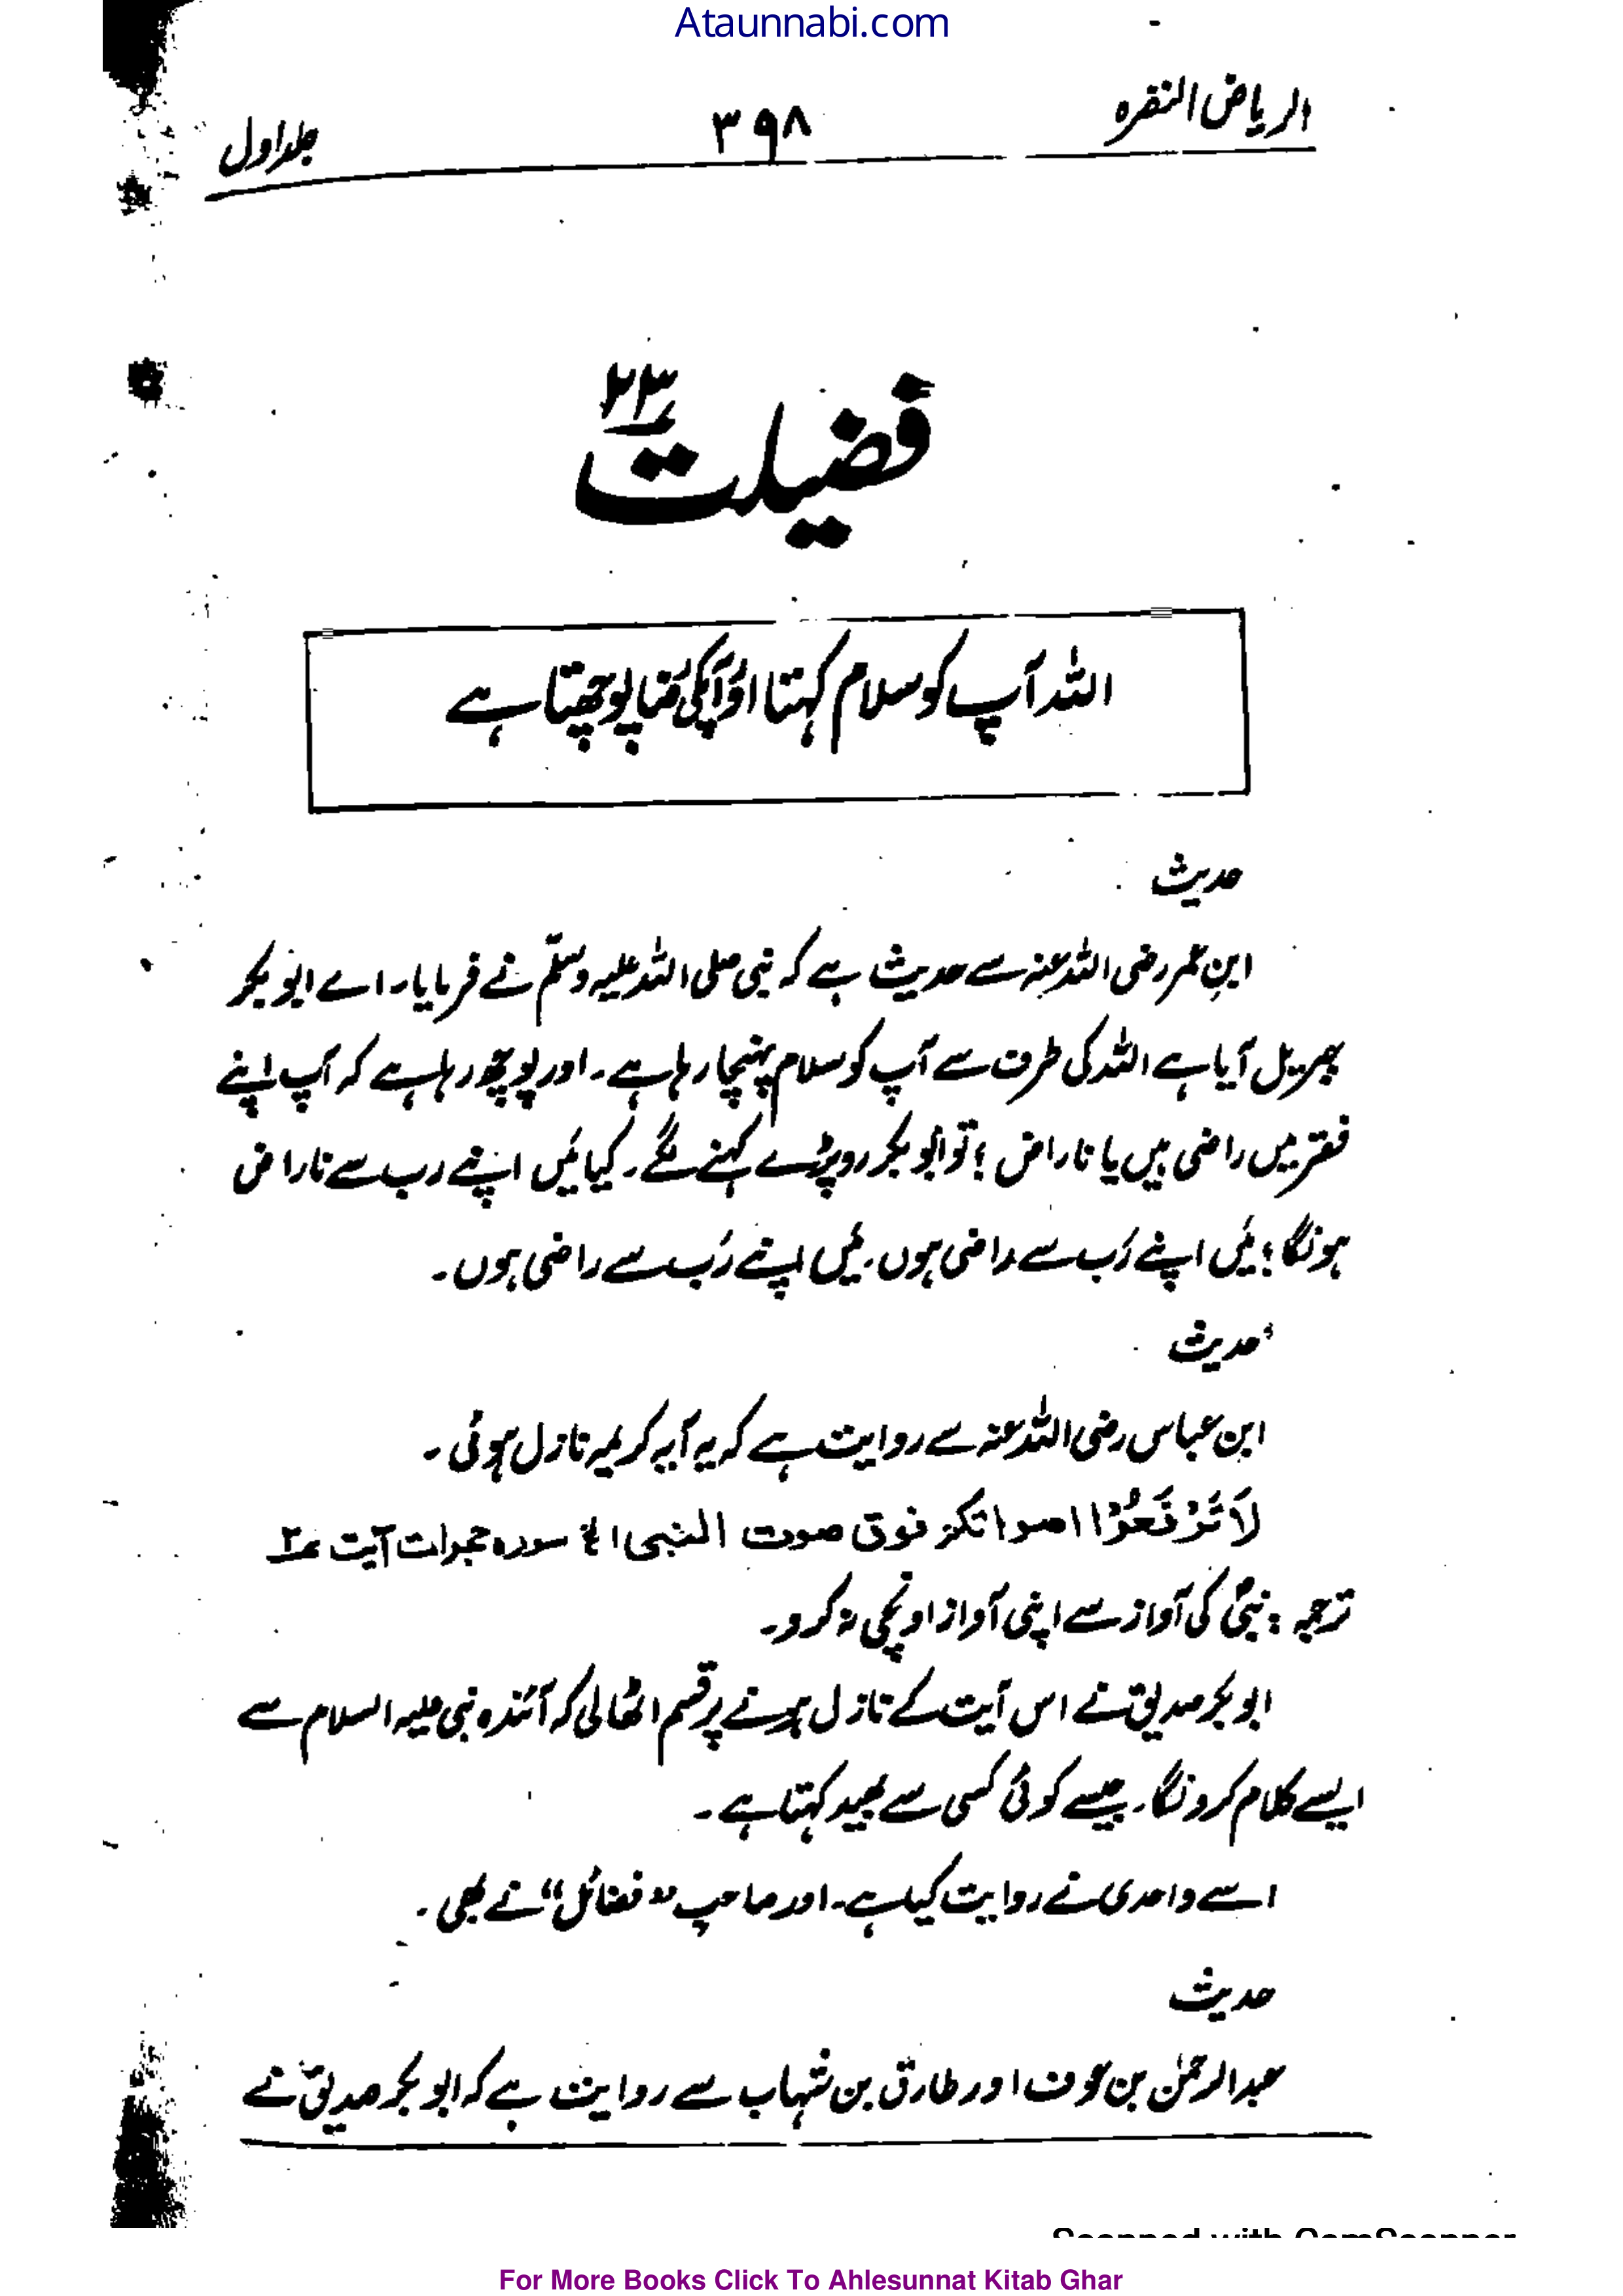 Ataunnabi.com
الریاض النضرہ ۳۹۸ جلد اول
فضیلت ۲۳
اللہ آپ کو سلام کہتا اور آپکی رضا پوچھتا ہے
حدیث
ابنِ عمر رضی اللہ عنہ سے حدیث ہے کہ نبی صلی اللہ علیہ وسلّم نے فرمایا۔ اے ابو بکر
جبریل آیا ہے اللہ کی طرف سے آپ کو سلام پہنچا رہا ہے۔ اور پوچھ رہا ہے کہ آپ اپنے
فقر میں راضی ہیں یا ناراض ؟ تو ابو بکر رو پڑے کہنے لگے۔ کیا میں اپنے رب سے ناراض
ہونگا ؟ میں اپنے رَب سے راضی ہوں۔ میں اپنے رَب سے راضی ہوں۔
حدیث
ابن عباس رضی اللہ عنہ سے روایت ہے کہ یہ آیہ کریمہ نازل ہوئی۔
لَا تَرْفَعُوْا اصواتکم فوق صوت النبی الخ سورہ حجرات آیت ۲
ترجمہ : نبیؐ کی آواز سے اپنی آواز اونچی نہ کرو۔
ابو بکر صدیق نے اس آیت کے نازل ہونے پر قسم اٹھالی کہ آئندہ نبی علیہ السلام سے
ایسے کلام کرونگا۔ جیسے کوئی کسی سے بھید کہتا ہے۔
اسے واحدی نے روایت کیا ہے۔ اور صاحب ”فضائل“ نے بھی۔
حدیث
عبدالرحمٰن بن عوف اور طارق بن شہاب سے روایت ہے کہ ابو بکر صدیق نے
Scanned with CamScanner
For More Books Click To Ahlesunnat Kitab Ghar